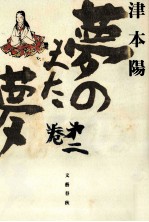 津本陽
夢の
また
夢
第二巻
文藝春秋